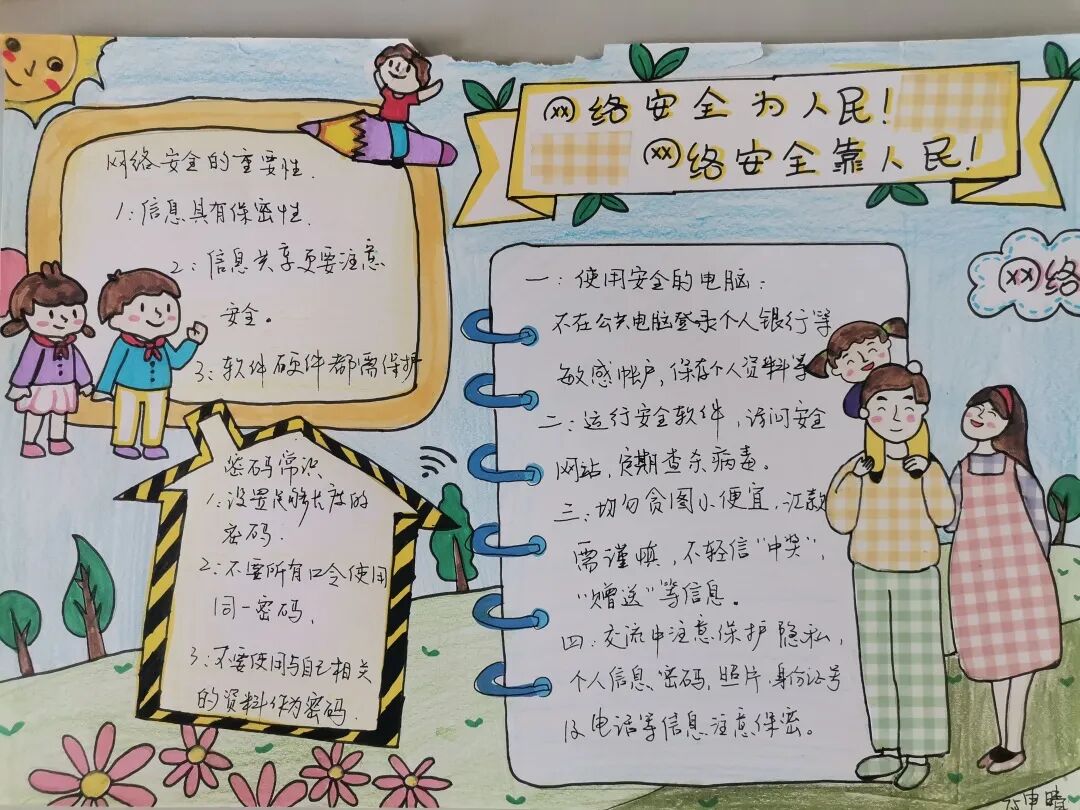 网络安全为人民!
网络安全靠人民!
网络安全的重要性.
1:信息具有保密性.
2:信息共享更要注意
安全。
3:软件硬件都需保护
密码常识
1:设置足够长度的
密码.
2:不要所有口令使用
同一密码.
3:不要使用与自己相关
的资料作为密码.
一:使用安全的电脑:
不在公共电脑登录个人银行等
敏感帐户,保存个人资料等
二:运行安全软件,访问安全
网站,定期查杀病毒。
三:切勿贪图小便宜,汇款
需谨慎,不轻信“中奖”,
“赠送”等信息。
四:交流中注意保护隐私,
个人信息,密码,照片,身份证号
及电话等信息注意保密。
网络
申晴